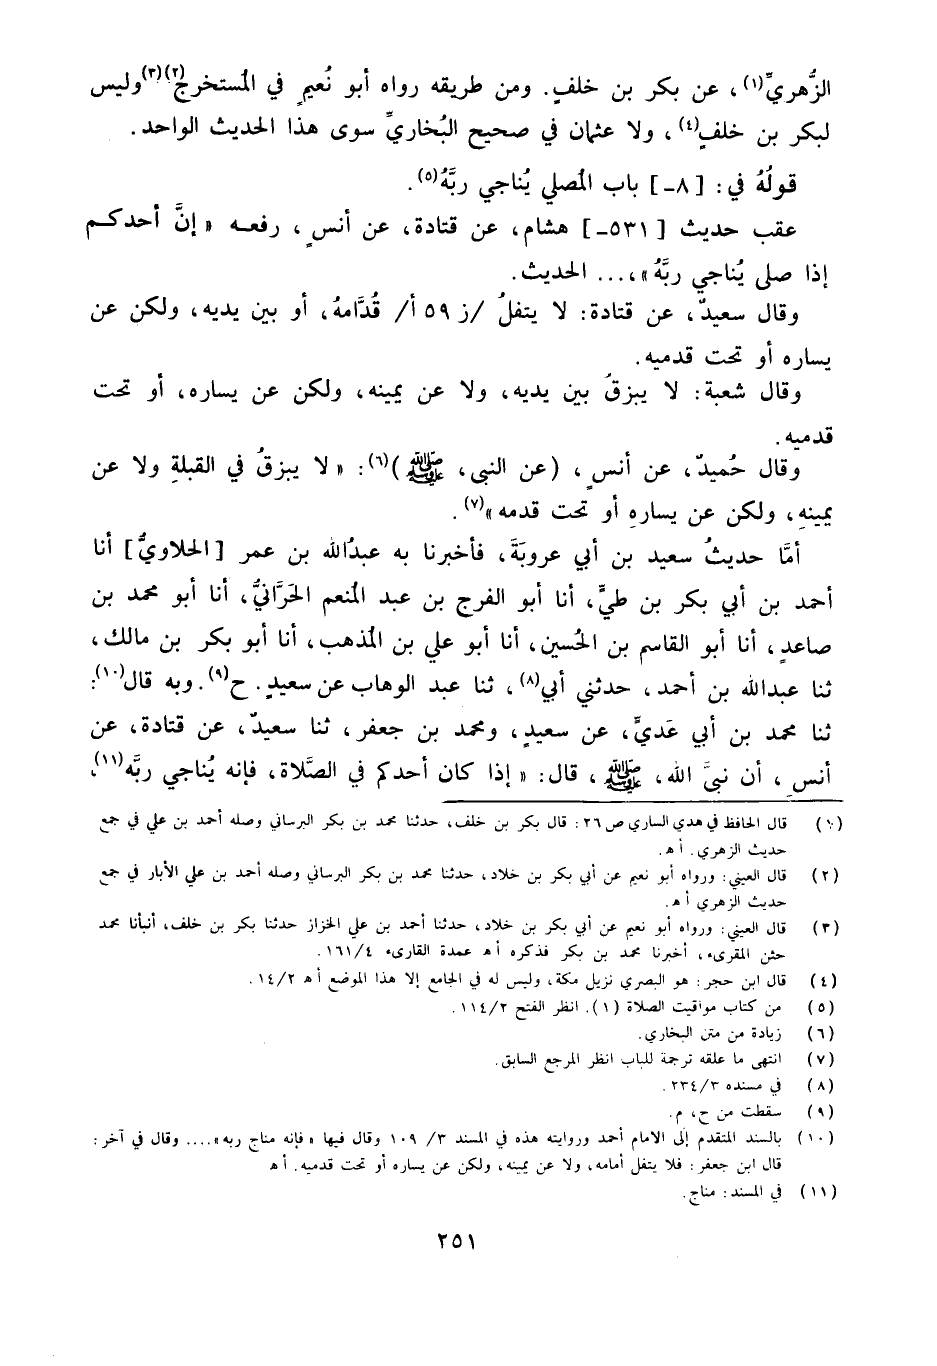 الزُّهريِّ(١)، عن بكر بن خلفٍ. ومن طريقه رواه أبو نُعيمٍ في المُستخرج(٢)(٣) وليس
لبكر بن خلفٍ(٤)، ولا عثمان في صحيح البُخاريِّ سوى هذا الحديث الواحد.
قولُهُ في: [٨ـ] باب المُصلي يُناجي ربَّهُ(٥).
عقب حديث [٥٣١ـ] هشام، عن قتادة، عن أنسٍ، رفعه « إنَّ أحدكم
إذا صلى يُناجي ربَّهُ »،... الحديث.
وقال سعيدٌ، عن قتادة: لا يتفلُ /ز ٥٩ أ/ قُدَّامهُ، أو بين يديه، ولكن عن
يساره أو تحت قدميه.
وقال شعبة: لا يبزقُ بين يديه، ولا عن يمينه، ولكن عن يساره، أو تحت
قدميه.
وقال حُميدٌ، عن أنسٍ، (عن النبي، ﷺ)(٦): « لا يبزقُ في القبلةِ ولا عن
يمينهِ، ولكن عن يسارهِ أو تحت قدمه »(٧).
أمَّا حديثُ سعيد بن أبي عروبَةَ، فأخبرنا به عبدُالله بن عمر [الحلاويُّ] أنا
أحمد بن أبي بكر بن طيٍّ، أنا أبو الفرج بن عبد المُنعم الحَرَّانيُّ، أنا أبو محمد بن
صاعدٍ، أنا أبو القاسم بن الحُسين، أنا أبو علي بن المُذهب، أنا أبو بكر بن مالك،
ثنا عبدالله بن أحمد، حدثني أبي(٨)، ثنا عبد الوهاب عن سعيدٍ. ح(٩). وبه قال(١٠):
ثنا محمد بن أبي عَديٍّ، عن سعيدٍ، ومحمد بن جعفر، ثنا سعيدٌ، عن قتادة، عن
أنسٍ، أن نبيَّ الله، ﷺ، قال: « إذا كان أحدكم في الصَّلاة، فإنه يُناجي ربَّه(١١)،
(١) قال الحافظ في هدي الساري ص ٢٦: قال بكر بن خلف، حدثنا محمد بن بكر البرساني وصله أحمد بن علي في جمع
حديث الزهري. أ هـ.
(٢) قال العيني: ورواه أبو نعيم عن أبي بكر بن خلاد، حدثنا محمد بن بكر البرساني وصله أحمد بن علي الأبار في جمع
حديث الزهري أ هـ.
(٣) قال العيني: ورواه أبو نعيم عن أبي بكر بن خلاد، حدثنا أحمد بن علي الخزاز حدثنا بكر بن خلف، أنبأنا محمد
حثن المقريء، أخبرنا محمد بن بكر فذكره أ هـ عمدة القاريء ١٦١/٤.
(٤) قال ابن حجر: هو البصري نزيل مكة، وليس له في الجامع إلا هذا الموضع أ هـ ١٤/٢.
(٥) من كتاب مواقيت الصلاة (١). انظر الفتح ١١٤/٢.
(٦) زيادة من متن البخاري.
(٧) انتهى ما علقه ترجمة للباب انظر المرجع السابق.
(٨) في مسنده ٢٣٤/٣.
(٩) سقطت من ح، م.
(١٠) بالسند المتقدم إلى الامام أحمد وروايته هذه في المسند ٣/ ١٠٩ وقال فيها « فإنه مناج ربه ».... وقال في آخر:
قال ابن جعفر: فلا يتفل أمامه، ولا عن يمينه، ولكن عن يساره أو تحت قدميه. أ هـ
(١١) في المسند: مناج.
٢٥١